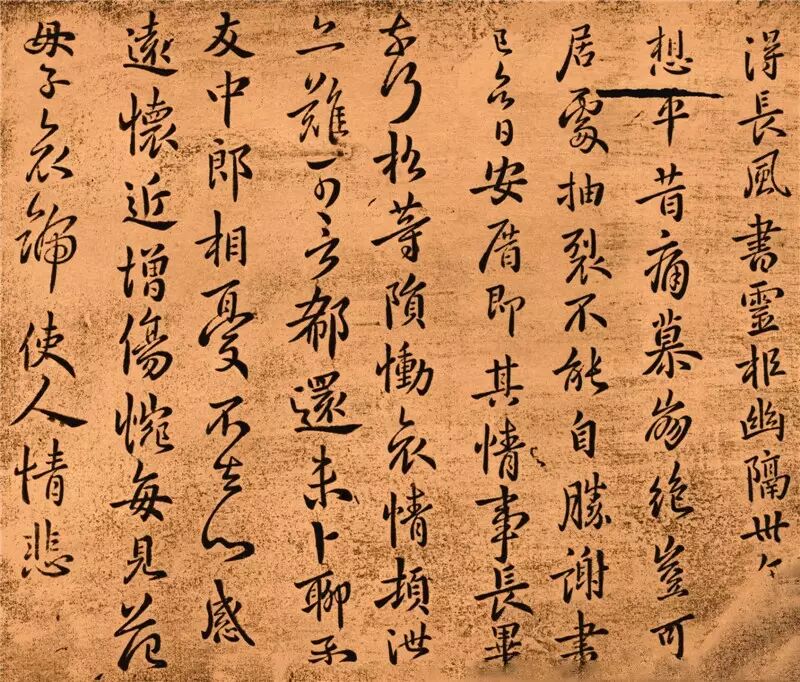 得長風書靈柩幽隔
想平昔痛慕崩絕豈可
居處抽裂不能自勝謝書
已日安厝即其情事長畢
奈何松等隕慟哀情頓泄
亦難可言郗還未卜聊示
友中郎相憂不去心感
遠懷近增傷惋每見范
母子哀號使人情悲